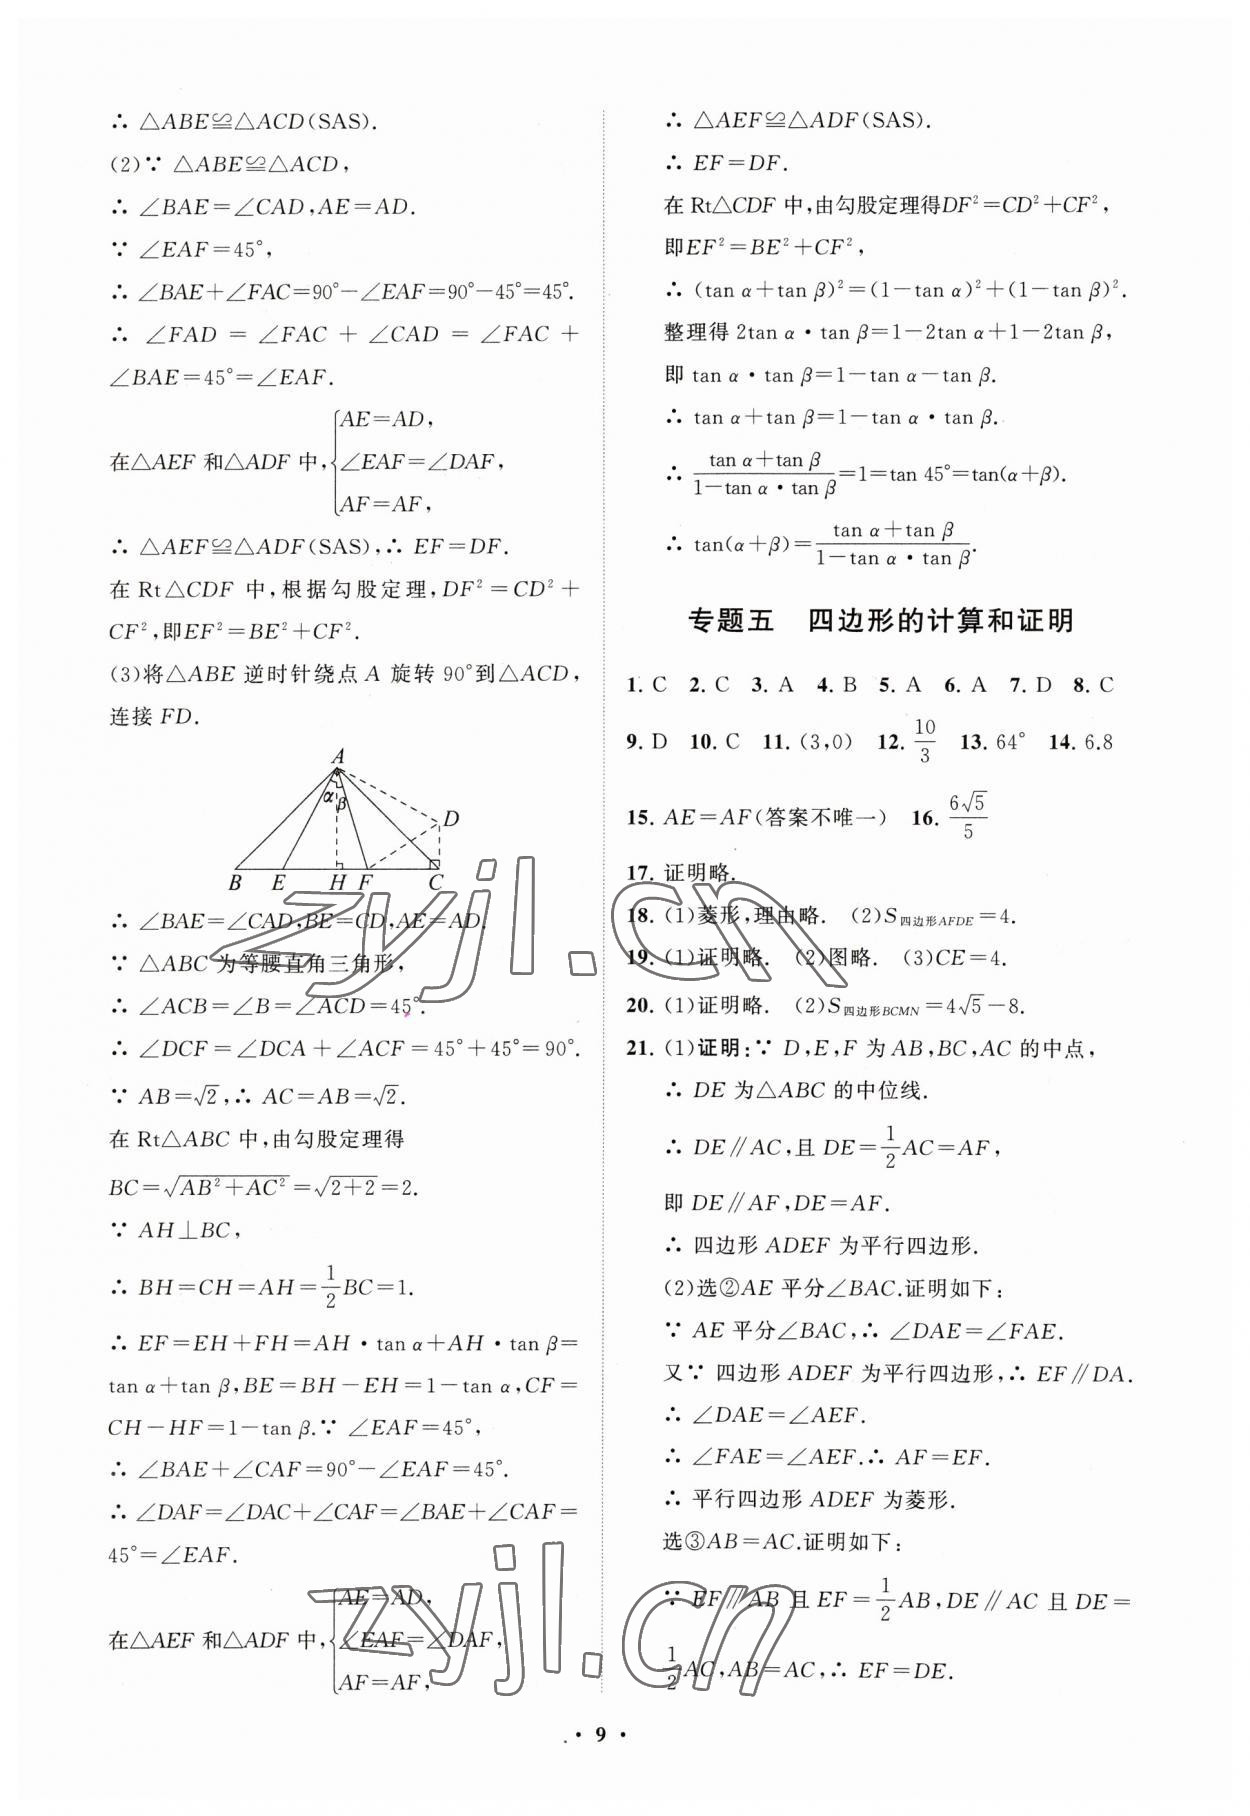 ∴ △ABE≌△ACD(SAS).
(2)∵ △ABE≌△ACD,
∴ ∠BAE=∠CAD,AE=AD.
∵ ∠EAF=45°,
∴ ∠BAE+∠FAC=90°-∠EAF=90°-45°=45°.
∴ ∠FAD = ∠FAC + ∠CAD = ∠FAC +
∠BAE=45°=∠EAF.
AE=AD,
在△AEF 和△ADF 中,{∠EAF=∠DAF,
AF=AF,
∴ △AEF≌△ADF(SAS),∴ EF=DF.
在 Rt△CDF 中,根据勾股定理,DF²=CD²+
CF²,即EF²=BE²+CF².
(3)将△ABE 逆时针绕点 A 旋转 90°到△ACD,
连接 FD.
A
α β
D
B E H F C
∴ ∠BAE=∠CAD,BE=CD,AE=AD.
∵ △ABC 为等腰直角三角形,
∴ ∠ACB=∠B=∠ACD=45°.
∴ ∠DCF=∠DCA+∠ACF=45°+45°=90°.
∵ AB=√2,∴ AC=AB=√2.
在 Rt△ABC 中,由勾股定理得
BC=√(AB²+AC²)=√(2+2)=2.
∵ AH⊥BC,
∴ BH=CH=AH=1/2BC=1.
∴ EF=EH+FH=AH·tan α+AH·tan β=
tan α+tan β,BE=BH-EH=1-tan α,CF=
CH-HF=1-tan β.∵ ∠EAF=45°,
∴ ∠BAE+∠CAF=90°-∠EAF=45°.
∴ ∠DAF=∠DAC+∠CAF=∠BAE+∠CAF=
45°=∠EAF.
AE=AD,
在△AEF 和△ADF 中,{∠EAF=∠DAF,
AF=AF,
∴ △AEF≌△ADF(SAS).
∴ EF=DF.
在 Rt△CDF 中,由勾股定理得DF²=CD²+CF²,
即EF²=BE²+CF²,
∴ (tan α+tan β)²=(1-tan α)²+(1-tan β)².
整理得 2tan α·tan β=1-2tan α+1-2tan β,
即 tan α·tan β=1-tan α-tan β.
∴ tan α+tan β=1-tan α·tan β.
∴ (tan α+tan β)/(1-tan α·tan β)=1=tan 45°=tan(α+β).
∴ tan(α+β)=(tan α+tan β)/(1-tan α·tan β).
专题五 四边形的计算和证明
1. C 2. C 3. A 4. B 5. A 6. A 7. D 8. C
9. D 10. C 11. (3,0) 12. 10/3 13. 64° 14. 6.8
15. AE=AF(答案不唯一) 16. 6√5/5
17. 证明略.
18. (1)菱形,理由略. (2)S四边形AFDE=4.
19. (1)证明略. (2)图略. (3)CE=4.
20. (1)证明略. (2)S四边形BCMN=4√5-8.
21. (1)证明:∵ D,E,F 为 AB,BC,AC 的中点,
∴ DE 为△ABC 的中位线.
∴ DE∥AC,且 DE=1/2AC=AF,
即 DE∥AF,DE=AF.
∴ 四边形 ADEF 为平行四边形.
(2)选②AE 平分∠BAC.证明如下:
∵ AE 平分∠BAC,∴ ∠DAE=∠FAE.
又∵ 四边形 ADEF 为平行四边形,∴ EF∥DA.
∴ ∠DAE=∠AEF.
∴ ∠FAE=∠AEF.∴ AF=EF.
∴ 平行四边形 ADEF 为菱形.
选③AB=AC.证明如下:
∵ EF∥AB 且 EF=1/2AB,DE∥AC 且 DE=
1/2AC,AB=AC,∴ EF=DE.
· 9 ·
zyjl.cn
zyjl.cn